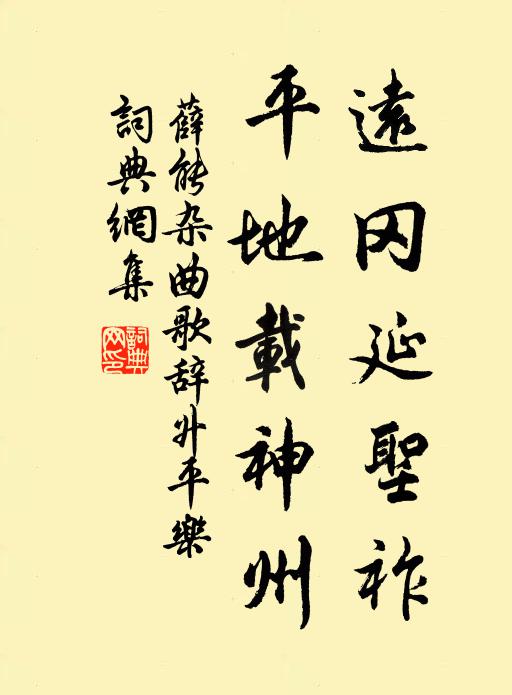 遠冈延聖祚
平地載神州
薛能杂曲歌辞升平樂
詞典網集
詞典网印